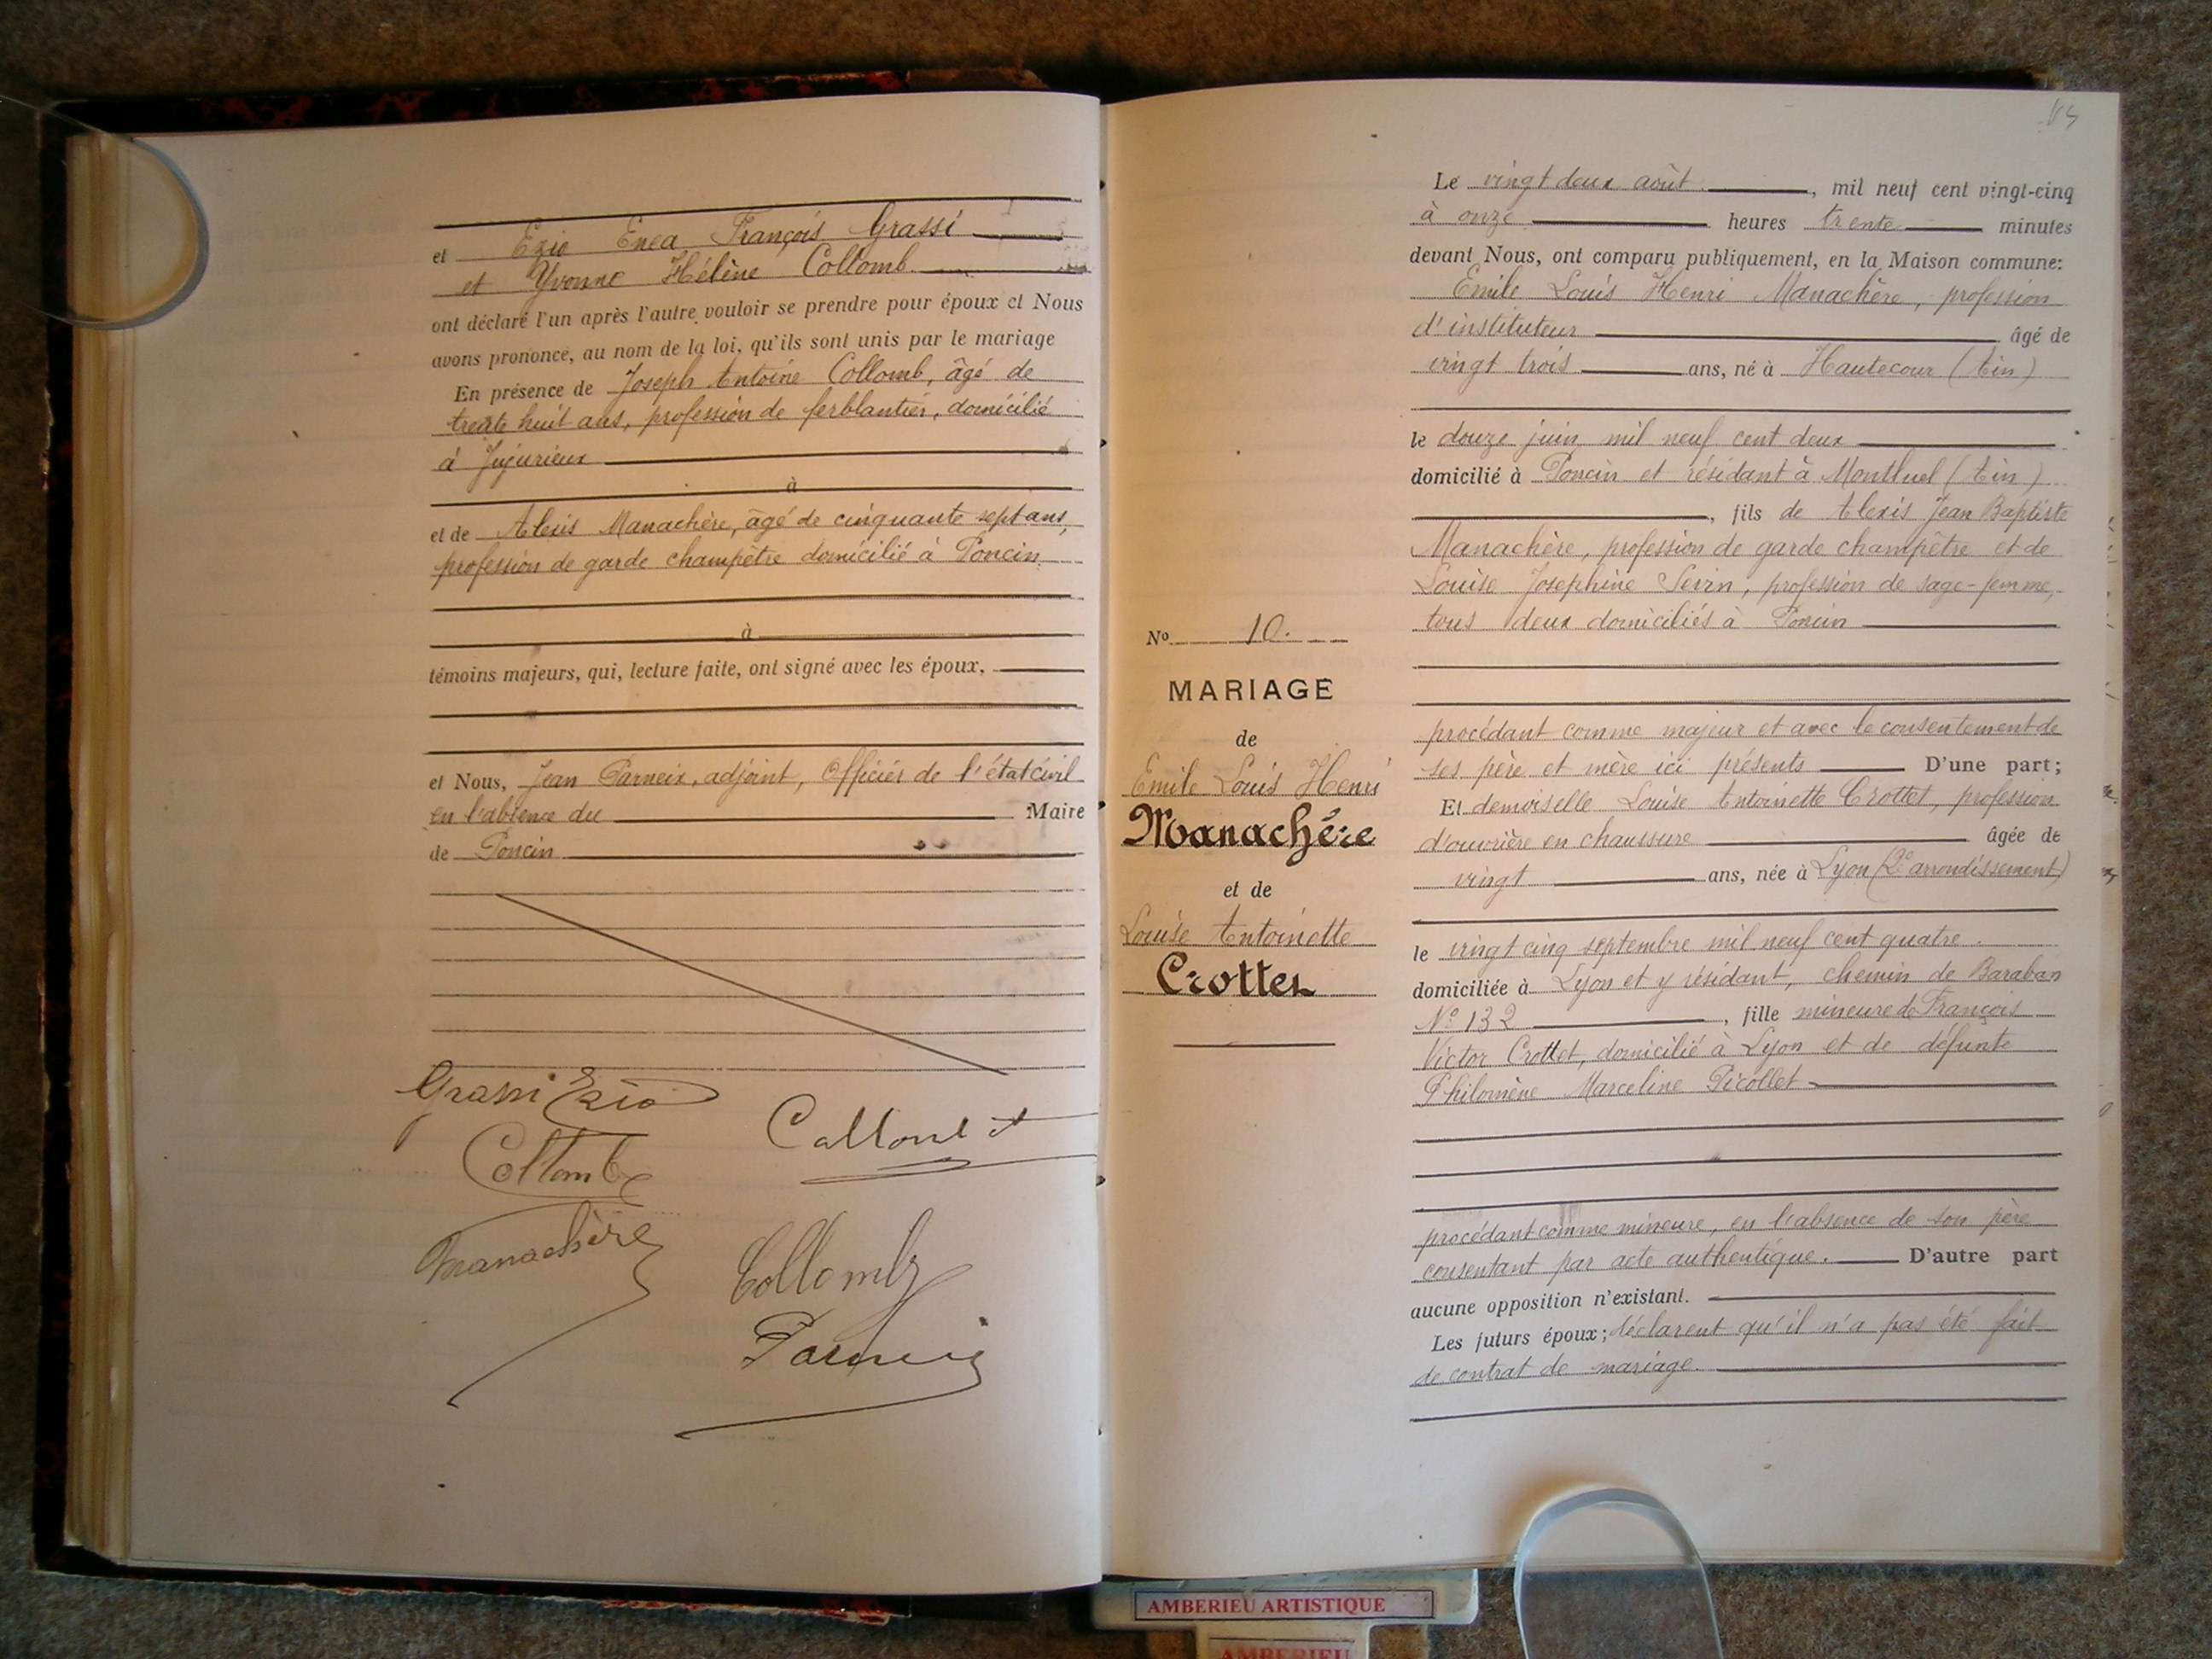 et Ezio Enea François Grassi
et Yvonne Hélène Collomb
ont déclaré l'un après l'autre vouloir se prendre pour époux et Nous
avons prononcé, au nom de la loi, qu'ils sont unis par le mariage
En présence de Joseph Antoine Collomb, âgé de
trente huit ans, profession de ferblantier, domicilié
à Jujurieux
à
et de Alexis Manachère, âgé de cinquante sept ans,
profession de garde champêtre domicilié à Poncin
à
témoins majeurs, qui, lecture faite, ont signé avec les époux,
et Nous, Jean Parneix, adjoint, Officier de l'état civil
en l'absence du Maire
de Poncin
Grassi Ezio
Collomb
Collomb
Manachère
Collomb
Parneix
Nº 10.
MARIAGE
de
Emile Louis Henri
Manachère
et de
Louise Antoinette
Crottet
Le vingt deux août, mil neuf cent vingt-cinq
à onze heures trente minutes
devant Nous, ont comparu publiquement, en la Maison commune:
Emile Louis Henri Manachère, profession
d'instituteur âgé de
vingt trois ans, né à Hautecour (Ain)
le douze juin mil neuf cent deux
domicilié à Poncin et résidant à Montluel (Ain)
, fils de Alexis Jean Baptiste
Manachère, profession de garde champêtre et de
Louise Josephine Sevin, profession de sage-femme,
tous deux domiciliés à Poncin
procédant comme majeur et avec le consentement de
ses père et mère ici présents D'une part;
Et demoiselle Louise Antoinette Crottet, profession
d'ouvrière en chaussure âgée de
vingt ans, née à Lyon (2e arrondissement)
le vingt cinq septembre mil neuf cent quatre.
domiciliée à Lyon et y résidant, chemin de Baraban
Nº 132, fille mineure de François
Victor Crottet, domicilié à Lyon et de défunte
Philomène Marceline Picollet
procédant comme mineure, en l'absence de son père
consentant par acte authentique. D'autre part
aucune opposition n'existant.
Les futurs époux; déclarent qu'il n'a pas été fait
de contrat de mariage.
AMBERIEU ARTISTIQUE
AMBERIEU